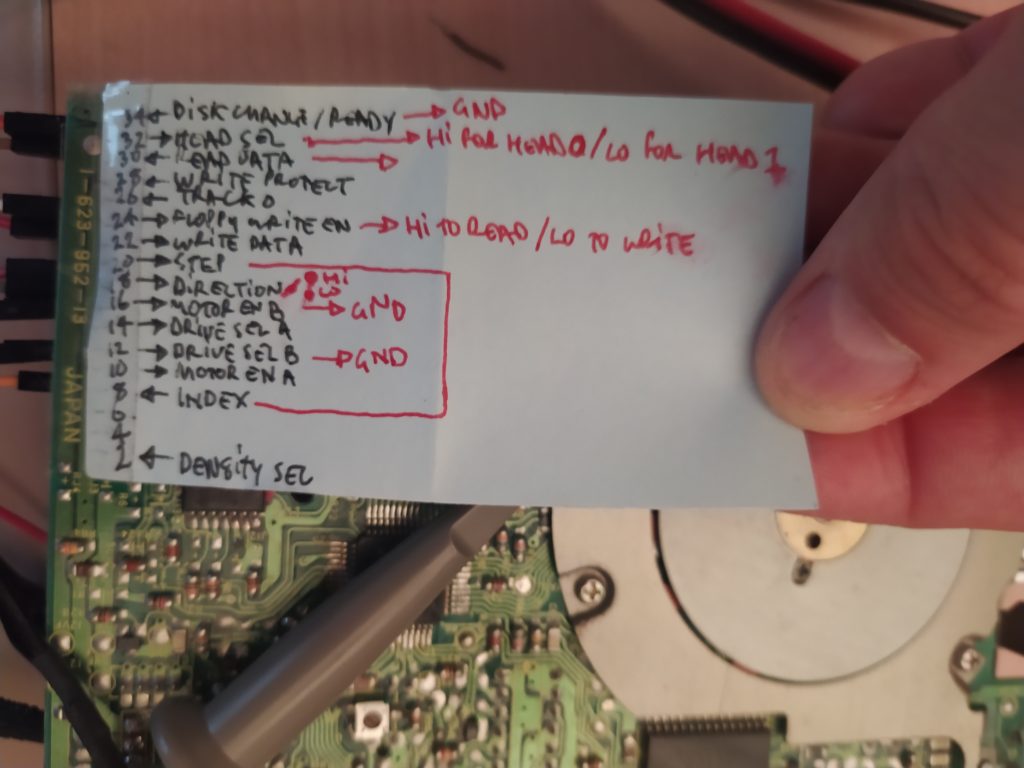 34 ← DISK CHANGE/READY → GND
32 → HEAD SEL → Hi FOR HEAD 0/LO FOR HEAD 1
30 ← READ DATA →
28 ← WRITE PROTECT
26 ← TRACK 0
24 → FLOPPY WRITE EN → Hi TO READ/LO TO WRITE
22 → WRITE DATA
20 → STEP
18 → DIRECTION Hi
LO
16 → MOTOR EN B → GND
14 → DRIVE SEL A
12 → DRIVE SEL B → GND
10 → MOTOR EN A
8 ← INDEX
6
4
2 ← DENSITY SEL
1-623-952-13
JAPAN